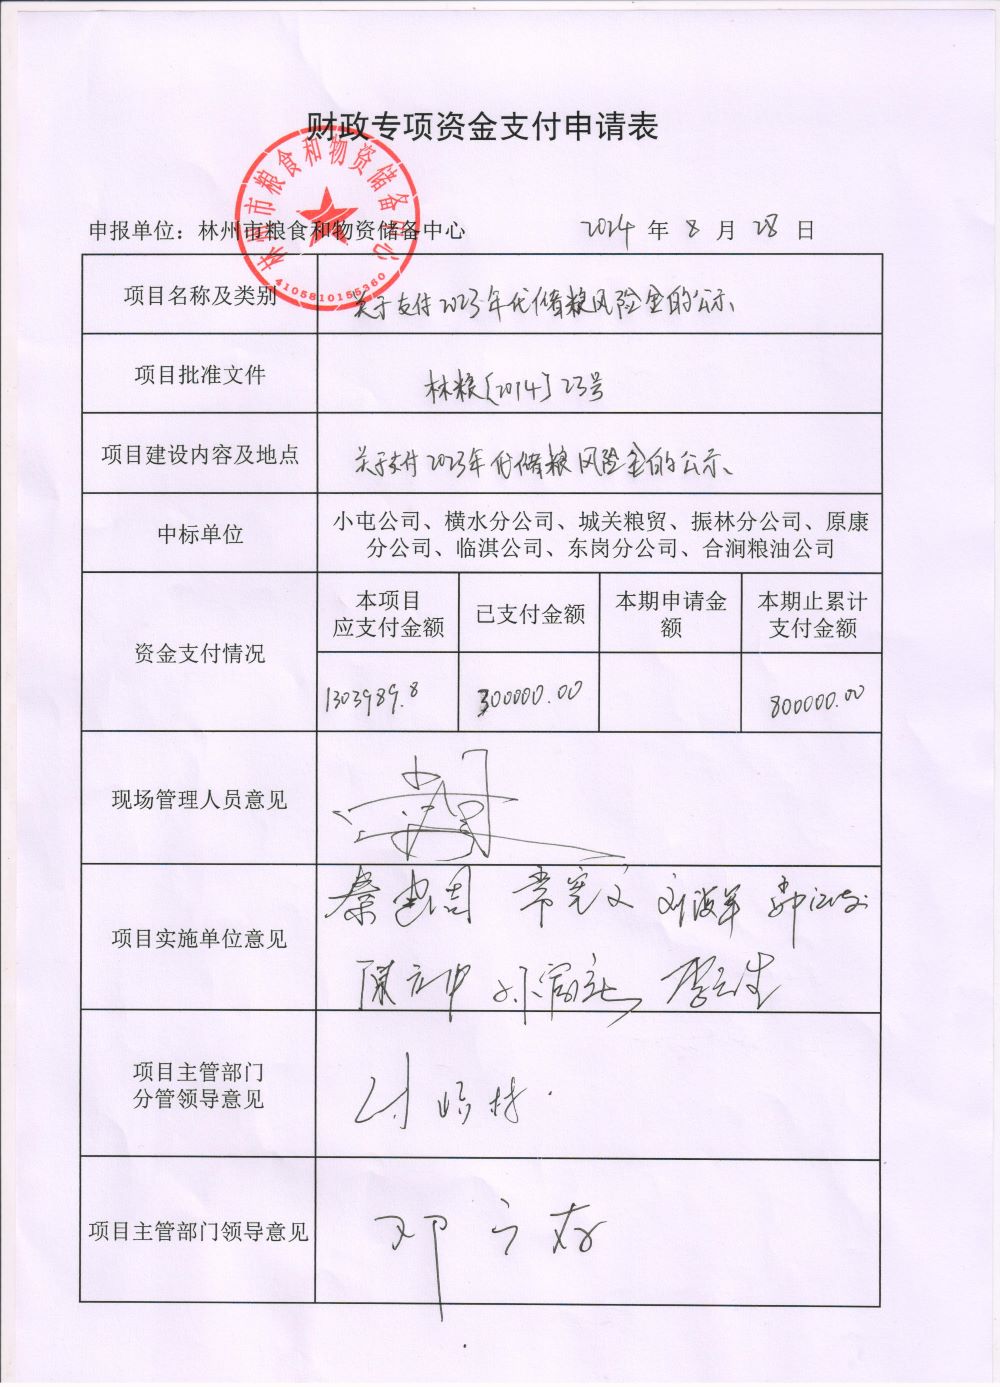 财政专项资金支付申请表
林州市粮食和物资储备中心
4105810155360
申报单位：林州市粮食和物资储备中心 2024 年 8 月 28 日
项目名称及类别 关于支付2023年代储粮风险金的公示、
项目批准文件 林粮〔2014〕23号
项目建设内容及地点 关于支付2023年代储粮风险金的公示、
中标单位 小屯公司、横水分公司、城关粮贸、振林分公司、原康
分公司、临淇公司、东岗分公司、合涧粮油公司
资金支付情况
本项目
应支付金额
已支付金额
本期申请金
额
本期止累计
支付金额
1303989.8 300000.00 800000.00
现场管理人员意见
项目实施单位意见 秦建周 常宪文 刘海军
李云生
项目主管部门
分管领导意见
项目主管部门领导意见 邓立存